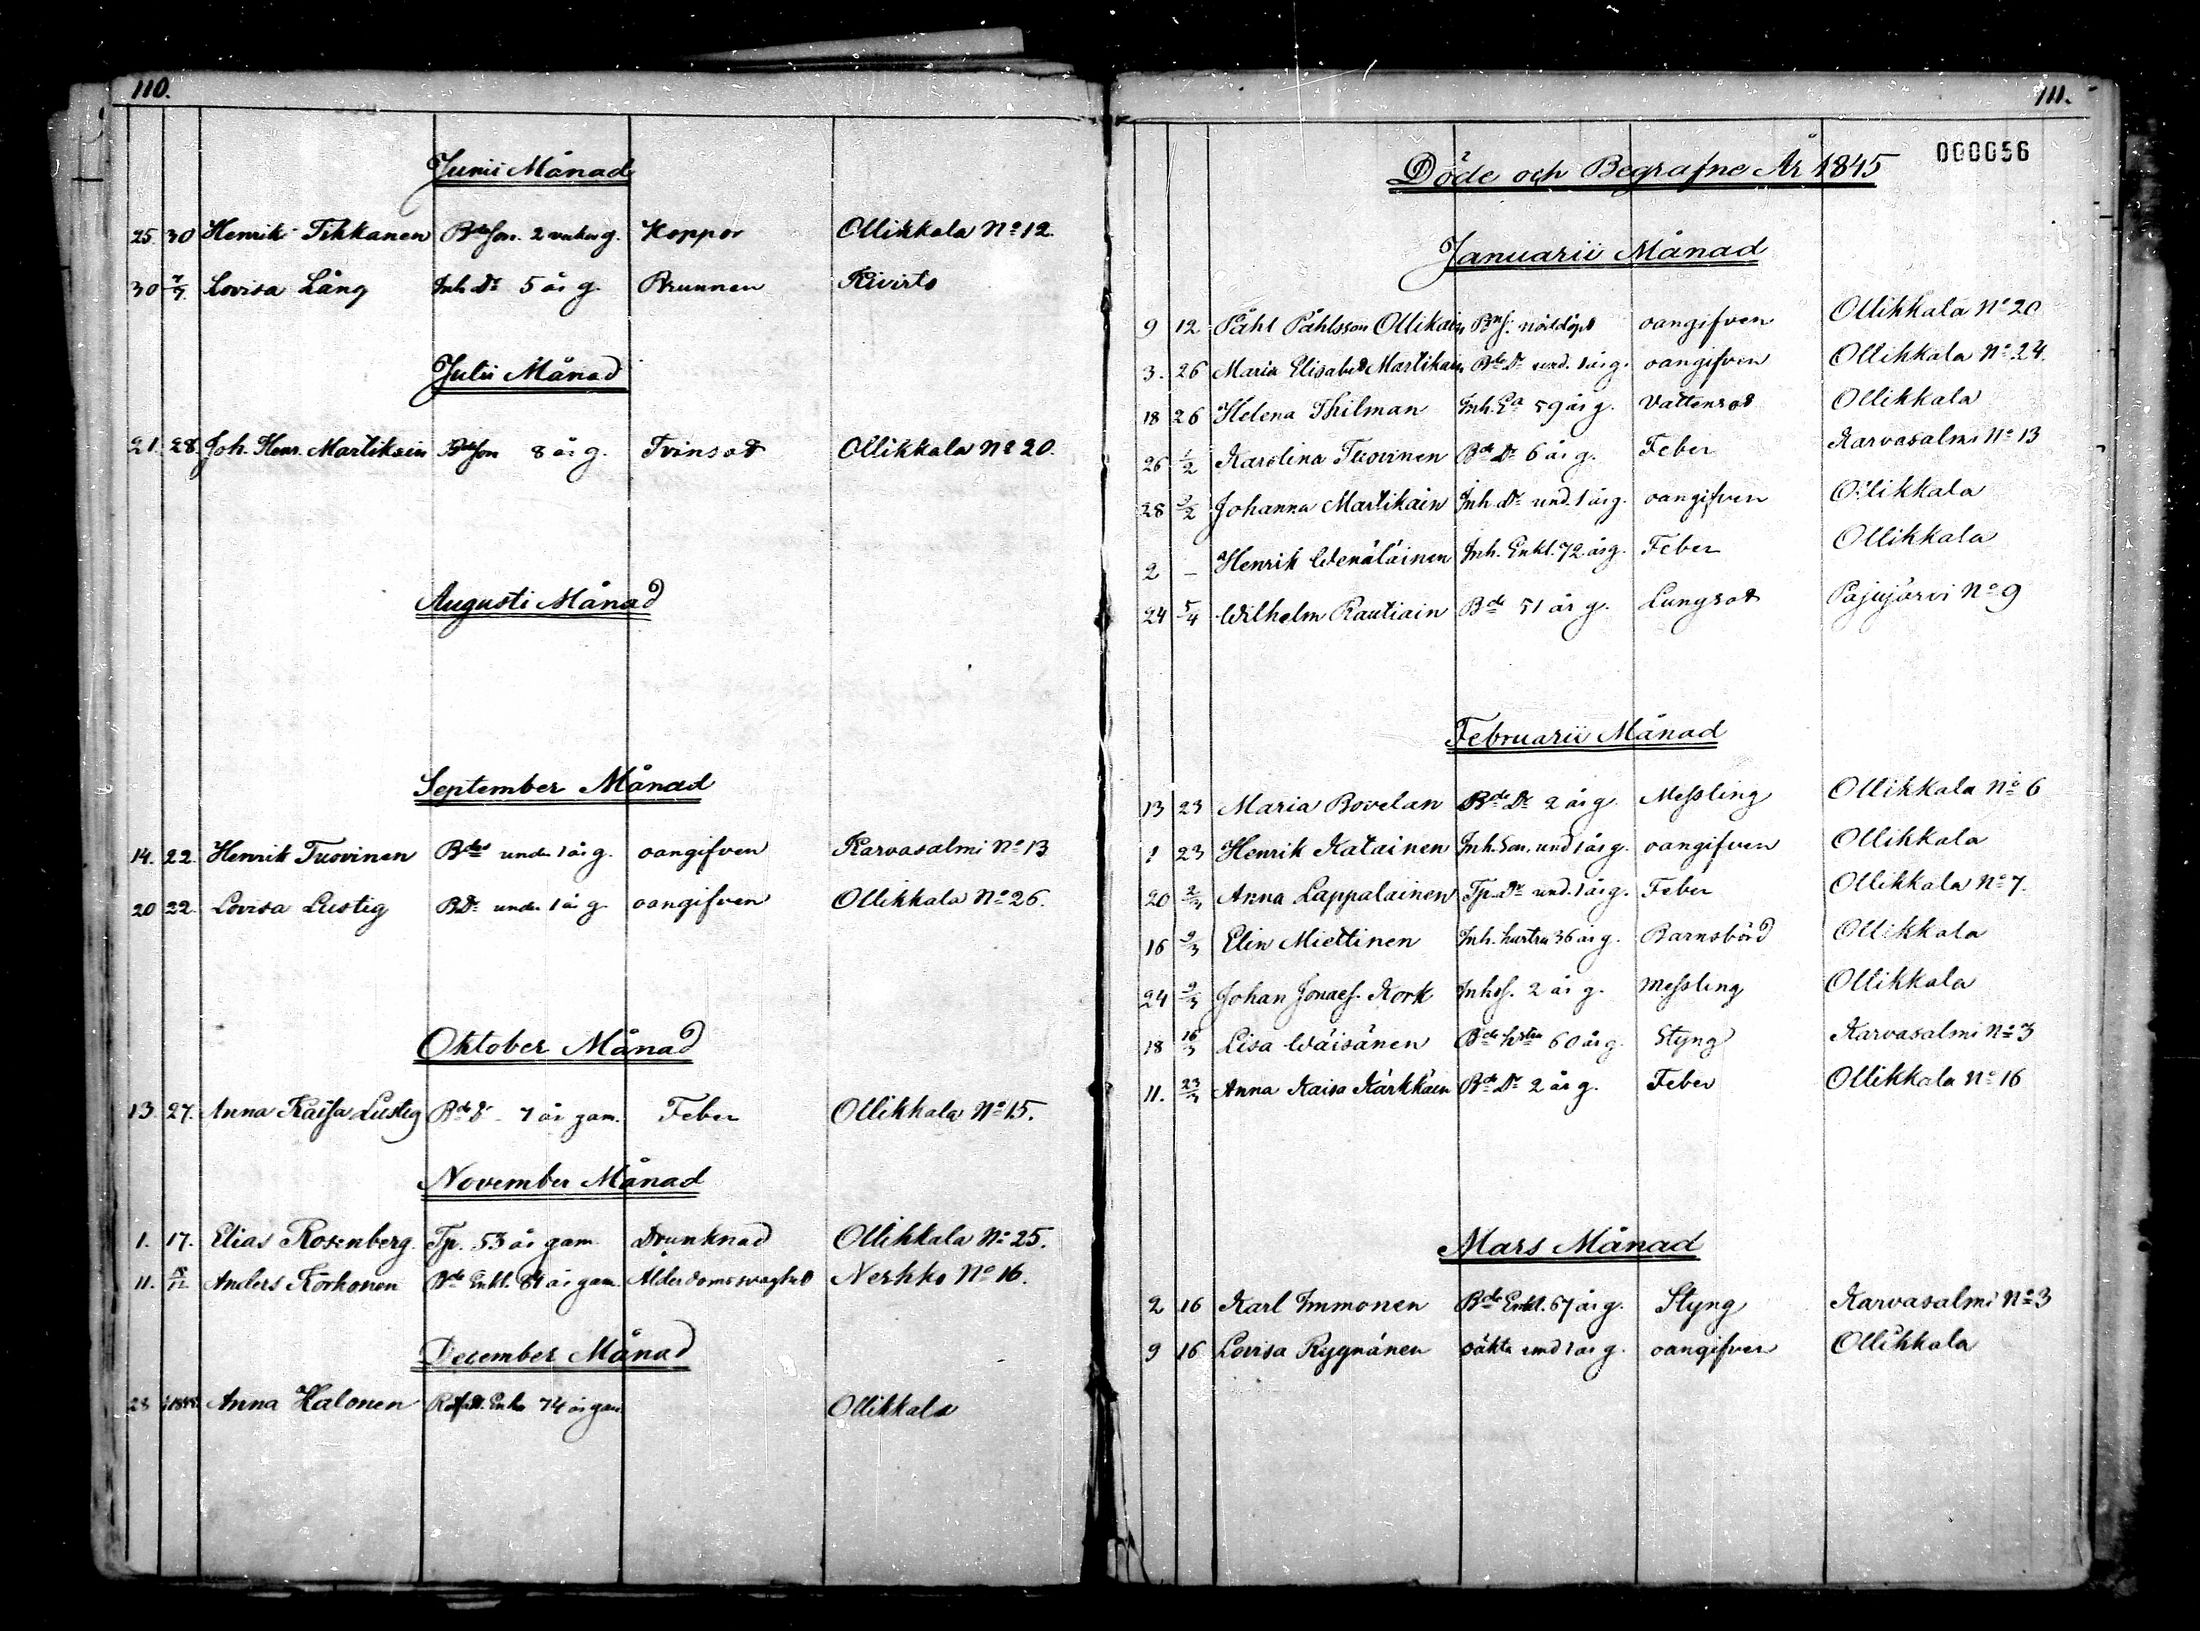 110.
Junii Månad
25. 30 Henrik Tikkanen Bdeson. 2 veckor g. Koppor Ollikkala No 12.
30 7/7. Lovisa Lång Inh. Dr 5 år g. Brunnen Kivirto
Julii Månad
21. 28. Joh. Henr. Martikain Bdeson 8 år g. Tvinsot Ollikkala No 20.
Augusti Månad
September Månad
14. 22. Henrik Tuovinen Bdes under 1 år g. oangifven Karvasalmi No 13
20 22. Lovisa Lustig BDr under 1 år g oangifven Ollikkala No 26.
Oktober Månad
13. 27. Anna Kaisa Lustig Bde D. 7 år gam. Feber Ollikkala No 15.
November Månad
1. 17. Elias Rosenberg. Tp. 53 år gam. Drunknad Ollikkala No 25.
11. Anders Korhonen Bde Enkl. 84 år gam. Ålderdomssvaghet Nerkko No 16.
December Månad
28 Anna Halonen 74 år gam. Ollikkala
111.
000056
Döde och Begrafne År 1845
Januarii Månad
9 12 Påhl Påhlsson Ollikain Bns. nöddöpt oangifven Ollikkala No 20
3. 26 Maria Elisabet Martikain Bde Dr und. 1 år g. oangifven Ollikkala No 24.
18 26 Helena Thilman Inh. Ea 59 år g. Vattensot Ollikkala
26 1/2 Karolina Tuovinen Bde Dr 6 år g. Feber Karvasalmi No 13
28 2/2 Johanna Martikain Inh. Dr und. 1 år g. oangifven Ollikkala
2 – Henrik Wenäläinen Inh. Enkl. 72 år g. Feber Ollikkala
24 5/4 Wilhelm Rautiain Bde 51 år g. Lungsot Pajujärvi No 9
Februarii Månad
13 23 Maria Bovelan Bde Dr 2 år g. Messling Ollikkala No 6
? 23 Henrik Katainen Inh. Son. und 1 år g. oangifven Ollikkala
20 2/3 Anna Lappalainen Tp. Dr und. 1 år g. Feber Ollikkala No 7.
16 9/3 Elin Miettinen Inh. hustru 36 år g. Barnsbörd Ollikkala
24 9/3 Johan Jonaes. Kork Inhs. 2 år g. Messling Ollikkala
18 16/3 Lisa Wäisänen Bde hstru 60 år g. Styng Karvasalmi No 3
11. 23/3 Anna Kaisa Kärkkäin Bde Dr 2 år g. Feber Ollikkala No 16
Mars Månad
2 16 Karl Immonen Bde Enkl. 67 år g. Styng Karvasalmi No 3
9 16 Lovisa Rygnänen oäkta und 1 år g. oangifven Ollikkala